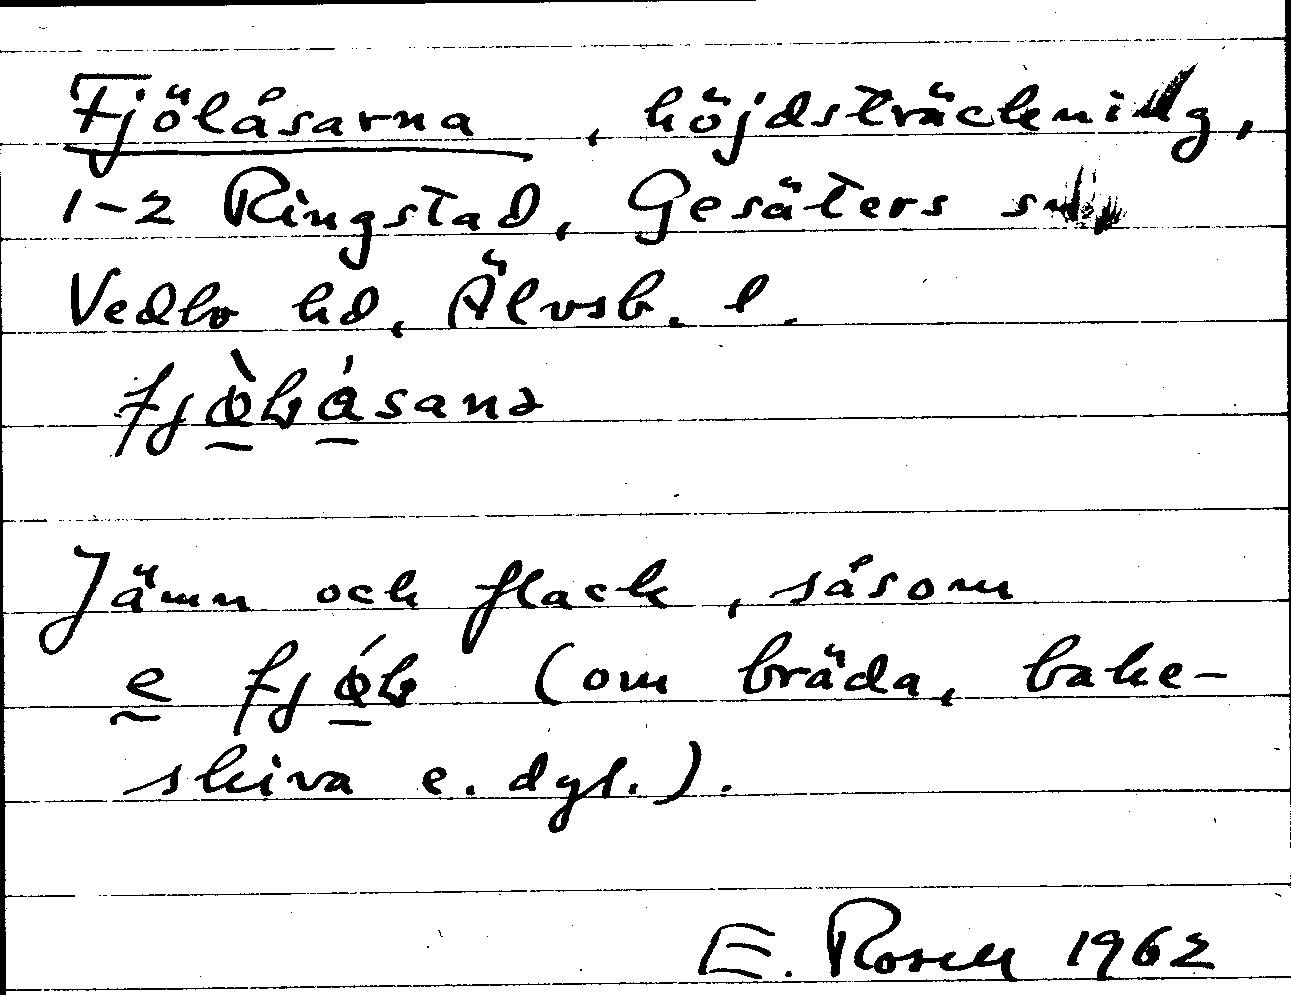 Fjölåsarna, höjdsträckning,
1-2 Ringstad, Gesäters sn
Vedbo hd, Älvsb. l.
fjø̀ḷåsanə
Jämn och flack, såsom
e fjǿḷ (om bräda, bake-
skiva e. dyl.).
E. Rosell 1962